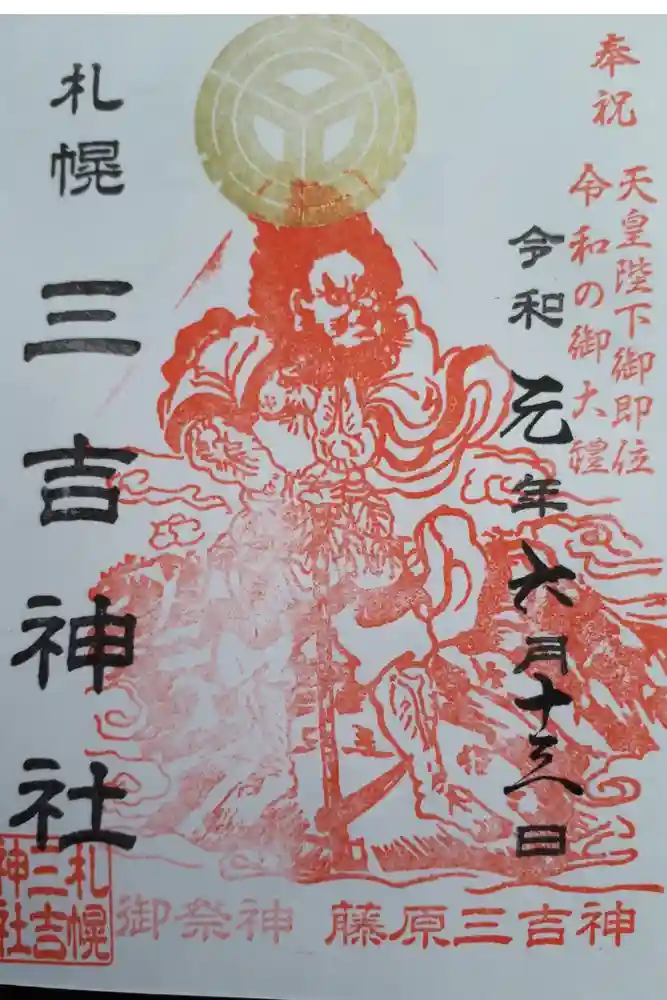 奉祝
天皇陛下御即位
令和の御大禮
令和元年六月十三日
札幌
三吉神社
札幌
三吉
神社
御祭神 藤原三吉神